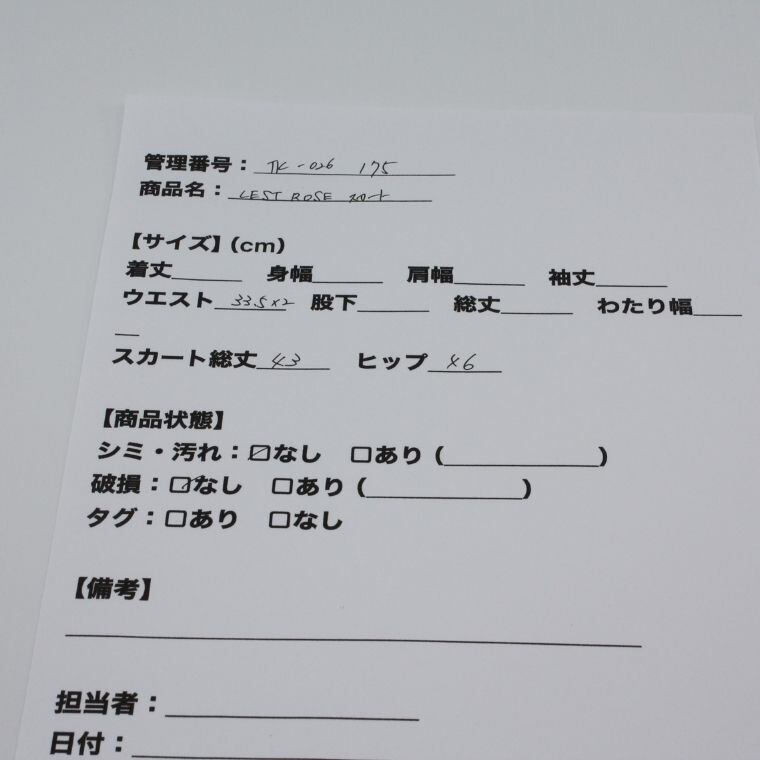 管理番号：TK-026 175
商品名：LEST ROSE スカート
【サイズ】(cm)
着丈______ 身幅______ 肩幅______ 袖丈______
ウエスト 33.5×2 股下______ 総丈______ わたり幅____
__
スカート総丈 43 ヒップ 46
【商品状態】
シミ・汚れ：☑なし □あり (____________)
破損：☑なし □あり (____________)
タグ：□あり □なし
【備考】
担当者：
日付：